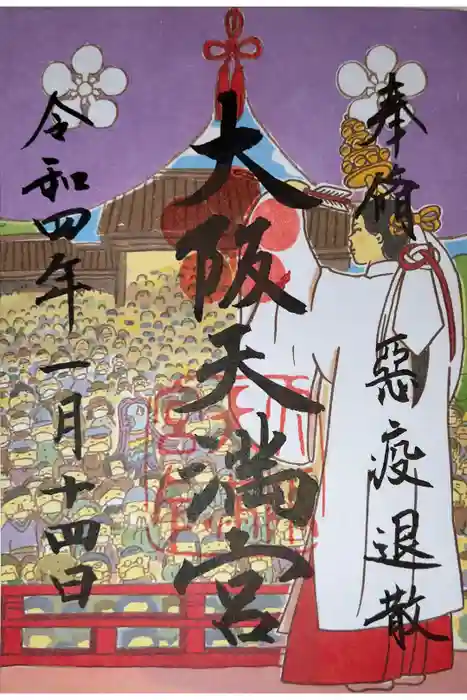 奉脩 惡疫退散
大阪天満宮
令和四年一月十四日